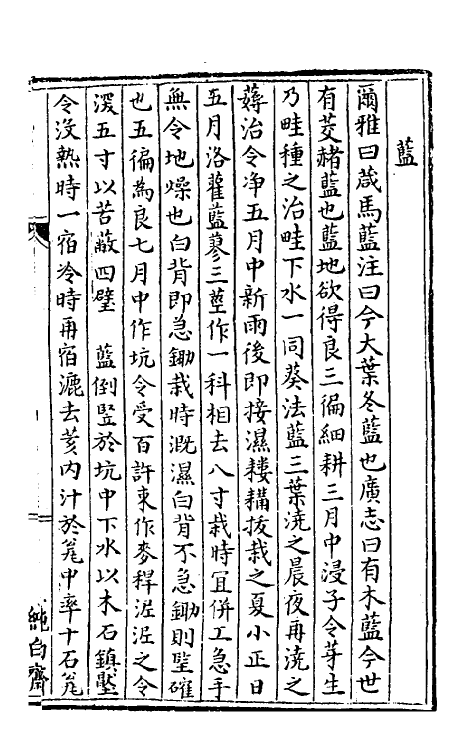 藍
爾雅曰葴馬藍注曰今大葉冬藍也廣志曰有木藍今世
有茭赭藍也藍地欲得良三徧細耕三月中浸子令芽生
乃畦種之治畦下水一同葵法藍三葉澆之晨夜再澆之
薅治令净五月中新雨後即接濕耬耩拔栽之夏小正曰
五月洛灌藍蓼三莖作一科相去八寸栽時宜併工急手
無令地燥也白背即急鋤栽時溉濕白背不急鋤則堅確
也五徧為良七月中作坑令受百許束作麥稈泥泥之令
深五寸以苫蔽四壁 藍倒豎於坑中下水以木石鎮壓
令没熱時一宿冷時再宿漉去荄内汁於瓮中率十石瓮
純白齋